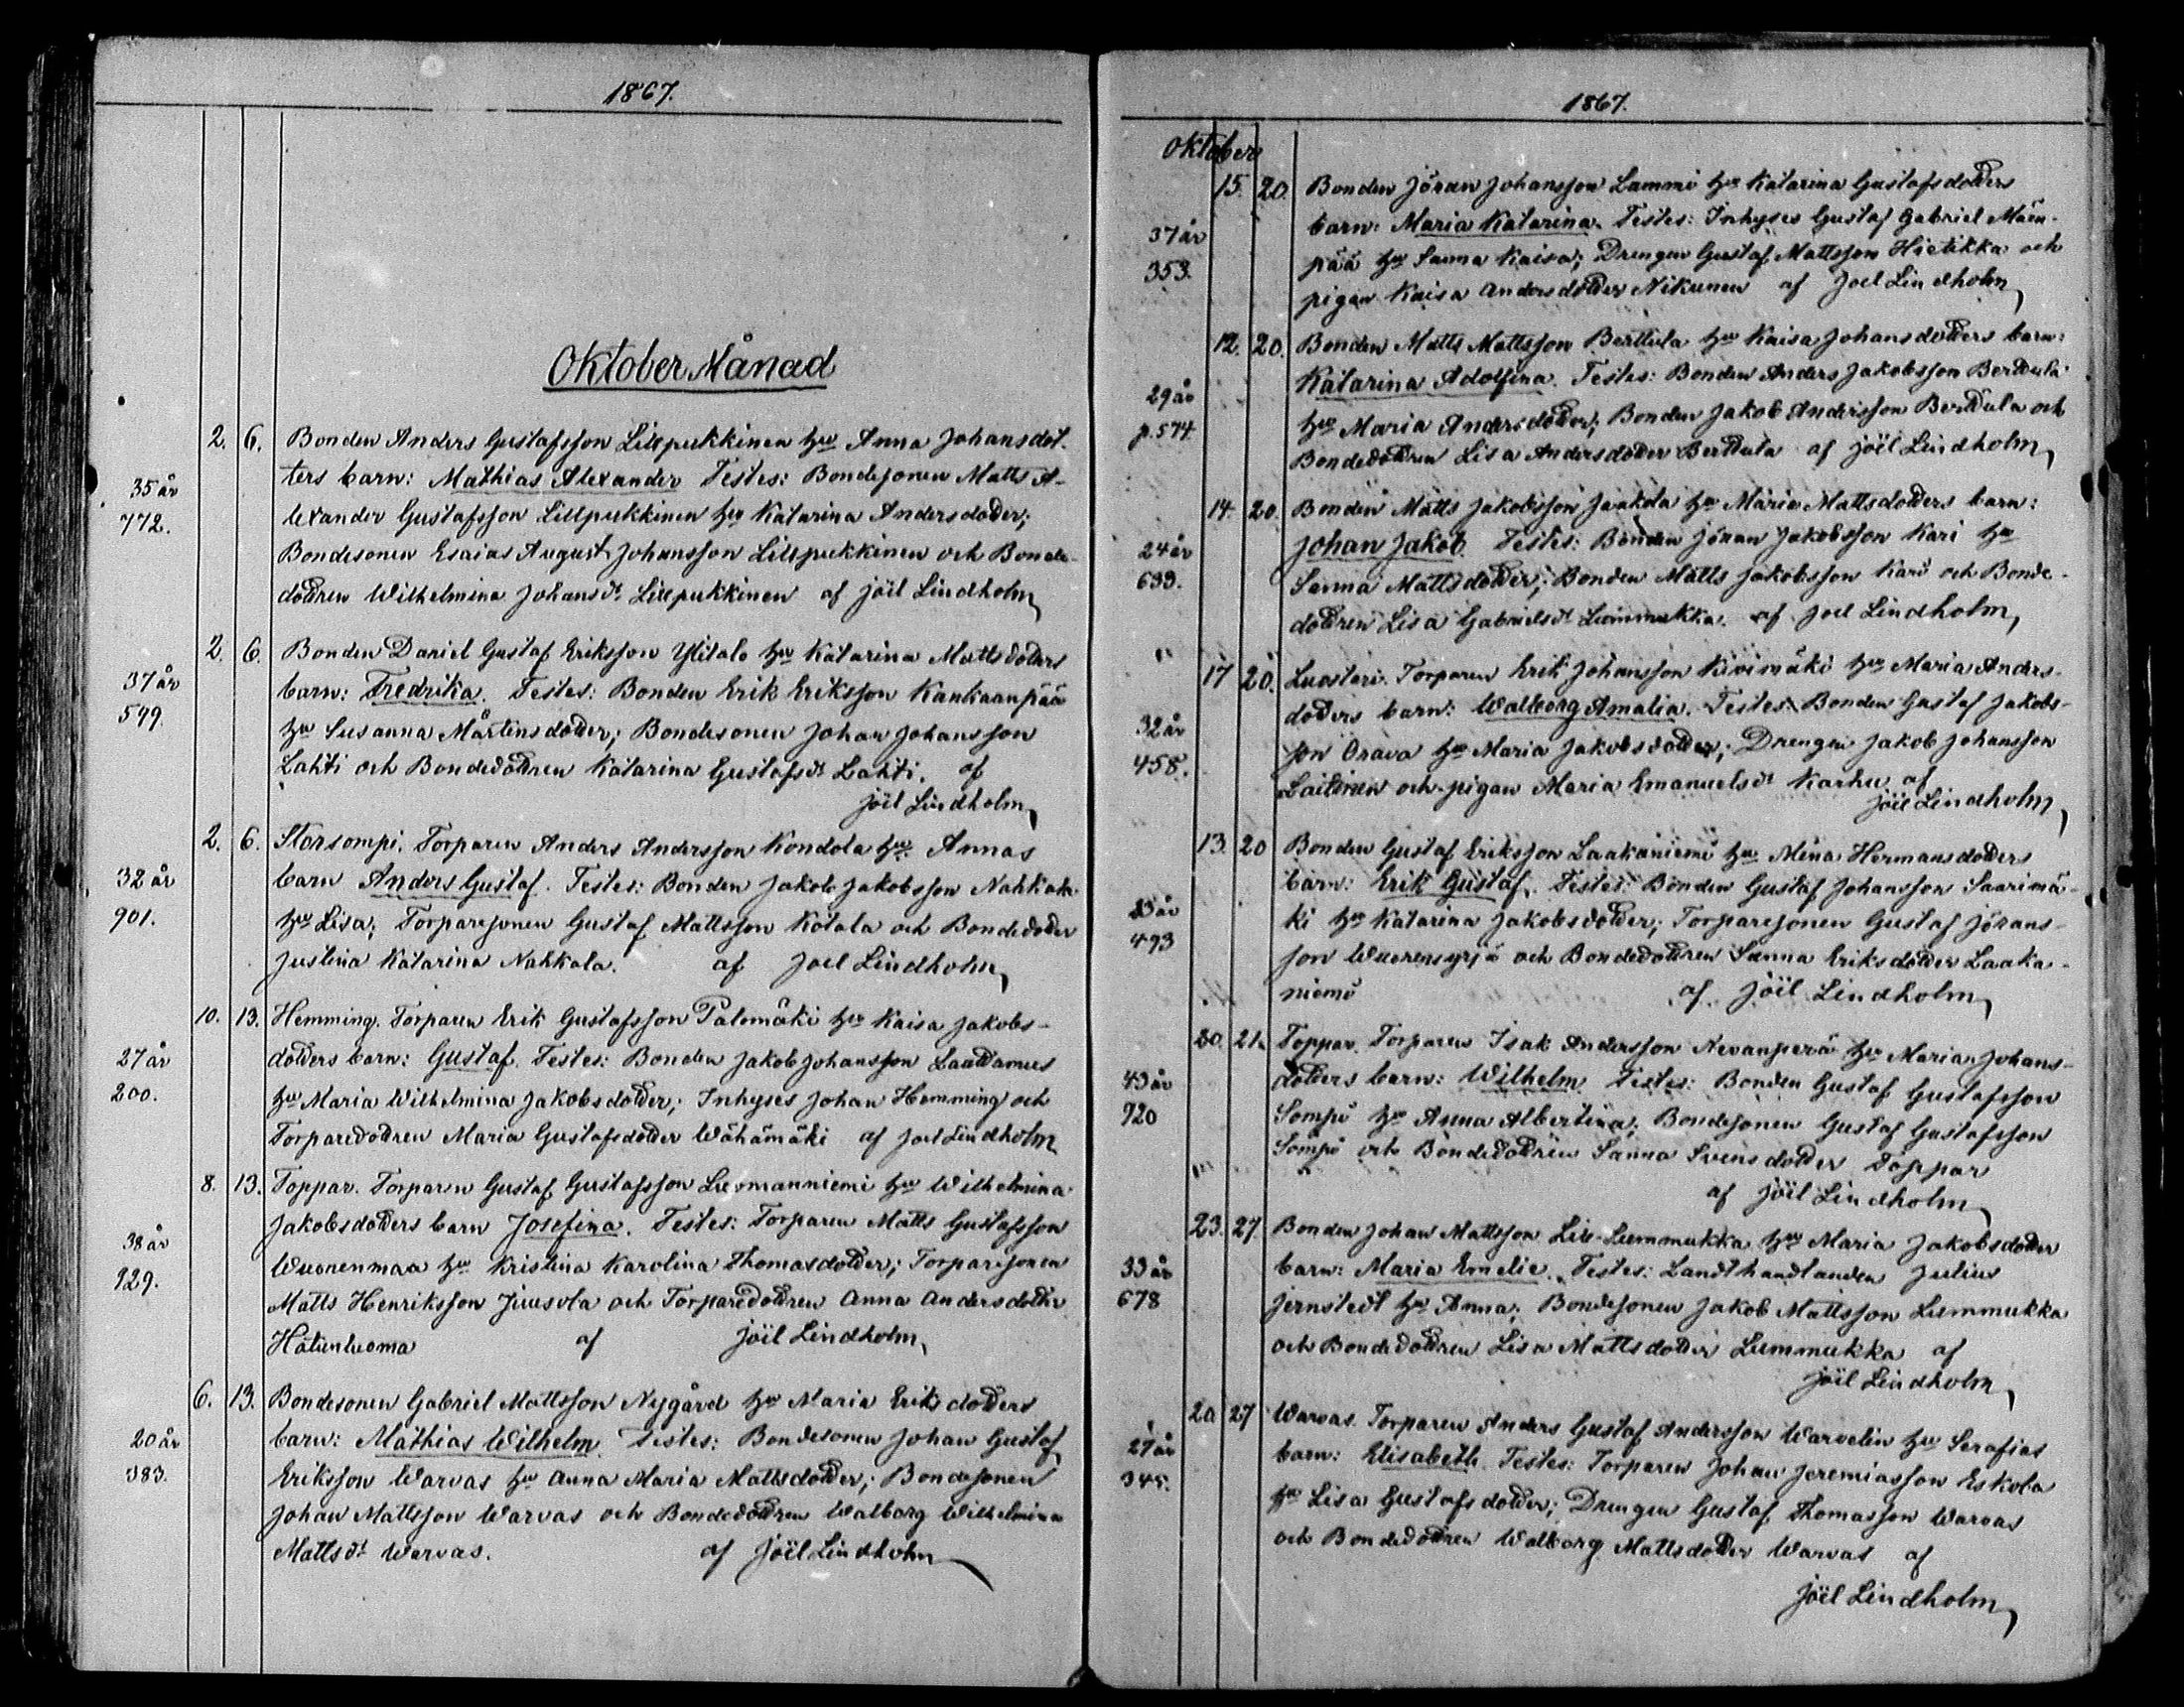 1867.
Oktober Månad
2. 6. Bonden Anders Gustafsson Lillpukkinen h:u Anna Johansdot-
ters barn: Mathias Alexander Testes: Bondesonen Matts A-
35 år
lexander Gustafsson Lillpukkinen h:u Katarina Andersdotter;
772.
Bondesonen Esaias August Johansson Lillpukkinen och Bonde-
dottren Wilhelmina Johansdr Lillpukkinen af Joël Lindholm
2. 6. Bonden Daniel Gustaf Eriksson Ylitalo h:u Katarina Mattsdotters
37 år
barn: Fredrika. Testes: Bonden Erik Eriksson Kankaanpää
549.
h:u Susanna Mårtensdotter; Bondesonen Johan Johansson
Lahti och Bondedottren Katarina Gustafsdr Lahti. af
Joël Lindholm
2. 6. Storsompi. Torparen Anders Andersson Kondola h:u Annas
32 år
barn Anders Gustaf. Testes: Bonden Jakob Jakobsson Nahkala
901.
h:u Lisa; Torparesonen Gustaf Mattsson Kotala och Bondedotter
Justina Katarina Nahkala. af Joel Lindholm
10. 13. Hemming. Torparen Erik Gustafsson Palomäki h:u Kaisa Jakobs-
27 år
dotters barn: Gustaf. Testes: Bonden Jakob Johansson Laattamus
200.
h:u Maria Wilhelmina Jakobsdotter; Inhyses Johan Hemming och
Torparedottren Maria Gustafsdotter Wähämäki af Joel Lindholm
8. 13. Toppar. Torparen Gustaf Gustafsson Luomanniemi h:u Wilhelmina
Jakobsdotters barn Josefina. Testes: Torparen Matts Gustafsson
38 år
Wuorenmaa h:u Kristina Karolina Thomasdotter; Torparesonen
929.
Matts Henriksson Juusola och Torparedottren Anna Andersdotter
Hätünluoma af Joël Lindholm
6. 13. Bondesonen Gabriel Mattsson Nygård h:u Maria Eriksdotters
20 år
barn: Mathias Wilhelm. Testes: Bondesonen Johan Gustaf
383.
Eriksson Warvas h:u Anna Maria Mattsdotter; Bondesonen
Johan Mattsson Warvas och Bondedottren Walborg Wilhelmina
Mattsdr Warvas. af Joël Lindholm
1867.
Oktober
15. 20. Bonden Jöran Johansson Lammi h:u Katarina Gustafsdotters
37 år
barn: Maria Katarina. Testes: Inhyses Gustaf Gabriel Mäen-
353.
pää h:u Sanna Kaisa; Drengen Gustaf Mattsson Hietikka och
pigan Kaisa Andersdotter Nikunen af Joel Lindholm
12. 20. Bonden Matts Mattsson Berttula h:u Kaisa Johansdotters barn:
29 år
Katarina Adolfina. Testes: Bonden Anders Jakobsson Berttula
p. 574.
h:u Maria Andersdotter; Bonden Jakob Andersson Berttula och
Bondedottren Lisa Andersdotter Berttula af Joël Lindholm
14. 20. Bonden Matts Jakobsson Jaakola h:u Maria Mattsdotters barn:
24 år
Johan Jakob. Testes: Bonden Jöran Jakobsson Kari h:u
633.
Sanna Mattsdotter; Bonden Matts Jakobsson Kari och Bonde-
dottren Lisa Gabrielsdr Lummukka. af Joel Lindholm
17 20. Luostari. Torparen Erik Johansson Kivimäki h:u Maria Anders-
32 år
dotters barn: Walborg Amalia. Testes: Bonden Gustaf Jakobs-
458.
son Orava h:u Maria Jakobsdotter; Drengen Jakob Johansson
Laitinen och pigan Maria Emanuelsdr Karhu af
Joël Lindholm
13. 20 Bonden Gustaf Eriksson Laakaniemi h:u Mina Hermansdotters
barn: Erik Gustaf. Testes: Bonden Gustaf Johansson Saarimä-
493
ki h:u Katarina Jakobsdotter; Torparesonen Gustaf Jörans-
son Wuorensyrjä och Bondedottren Sanna Eriksdotter Laaka-
niemi af Joël Lindholm
20. 21. Toppar. Torparen Isak Andersson Nevanperä h:u Maria Johans-
43 år
dotters barn: Wilhelm Testes: Bonden Gustaf Gustafsson
920
Sompi h:u Anna Albertina; Bondesonen Gustaf Gustafsson
Sompi och Bondedottren Sanna Svensdotter Toppar
af Joël Lindholm
23. 27. Bonden Johan Mattsson Lill-Lummukka h:u Maria Jakobsdotter
33 år
barn: Maria Emelie. Testes: Landthandlanden Julius
678
Jernstedt h:u Anna; Bondesonen Jakob Mattsson Lummukka
och Bondedottren Lisa Mattsdotter Lummukka af
Joël Lindholm
20 27 Warvas. Torparen Anders Gustaf Andersson Warvelin h:u Serafias
27 år
barn: Elisabeth. Testes: Torparen Johan Jeremiasson Eskola
345.
h:u Lisa Gustafsdotter; Drengen Gustaf Thomasson Warvas
och Bondedottren Walborg Mattsdotter Warvas af
Joël Lindholm